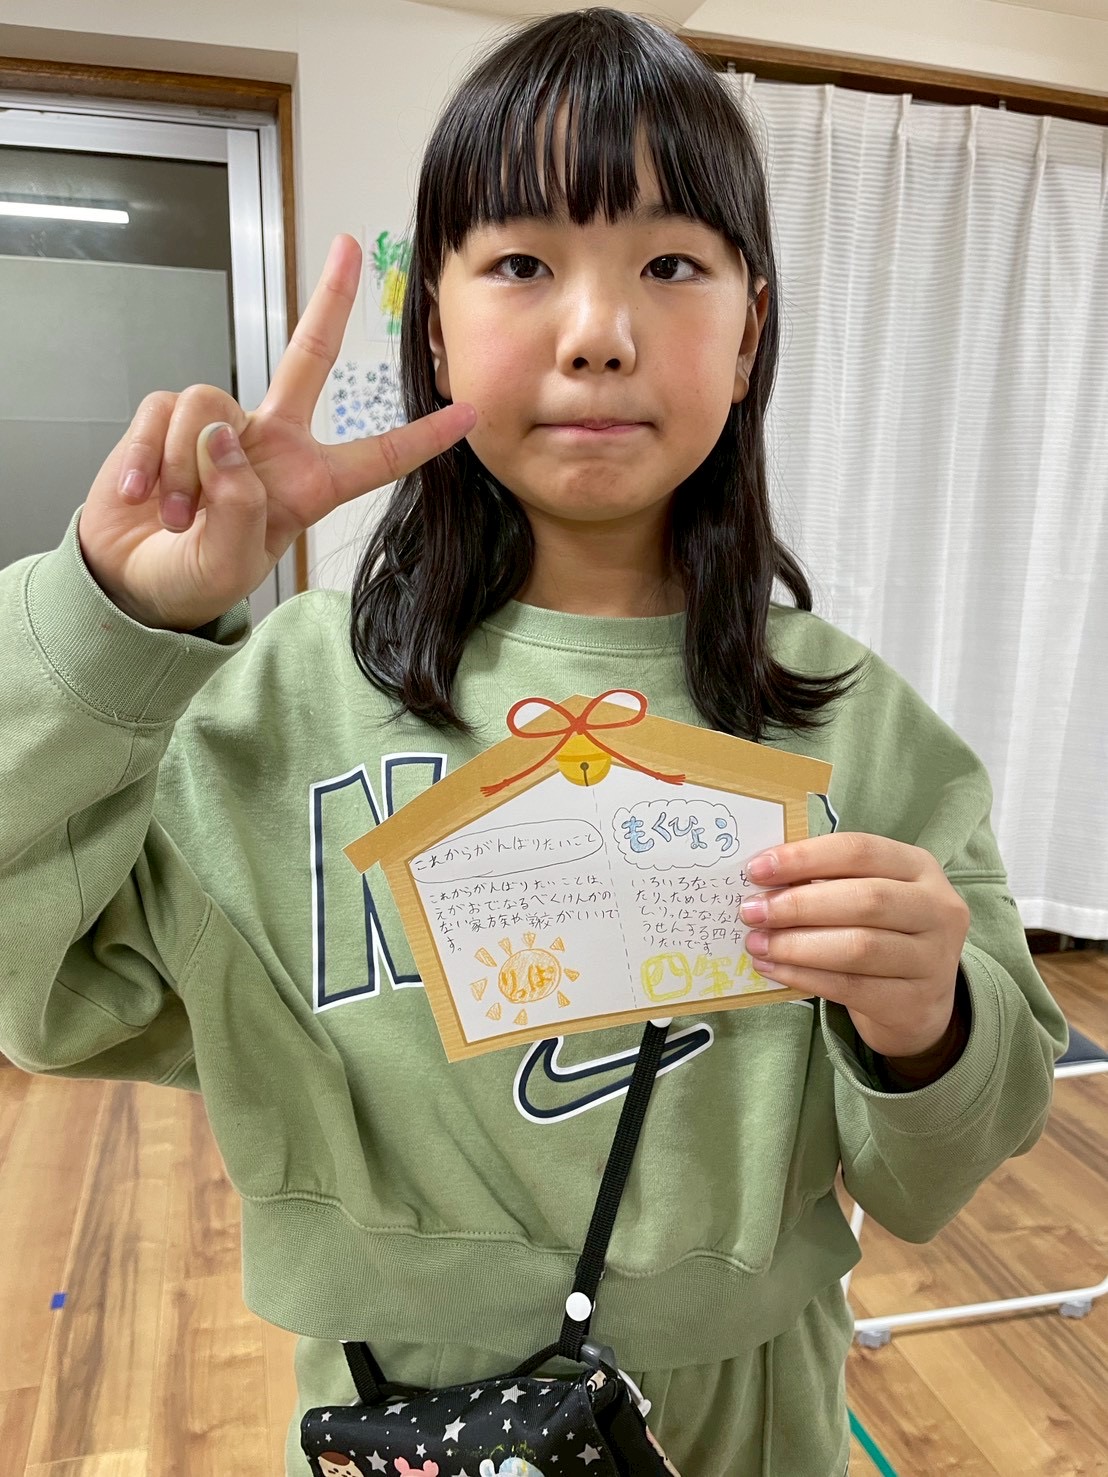 N
これからがんばりたいこと
これからがんばりたいことは、
えがおでなるべくけんかの
ない家族や学校がいいで
す。
りっぱ
もくひょう
いろいろなことを
たり、ためしたりす
りっぱな、なん
うせんする四年
りたいです。
四年生